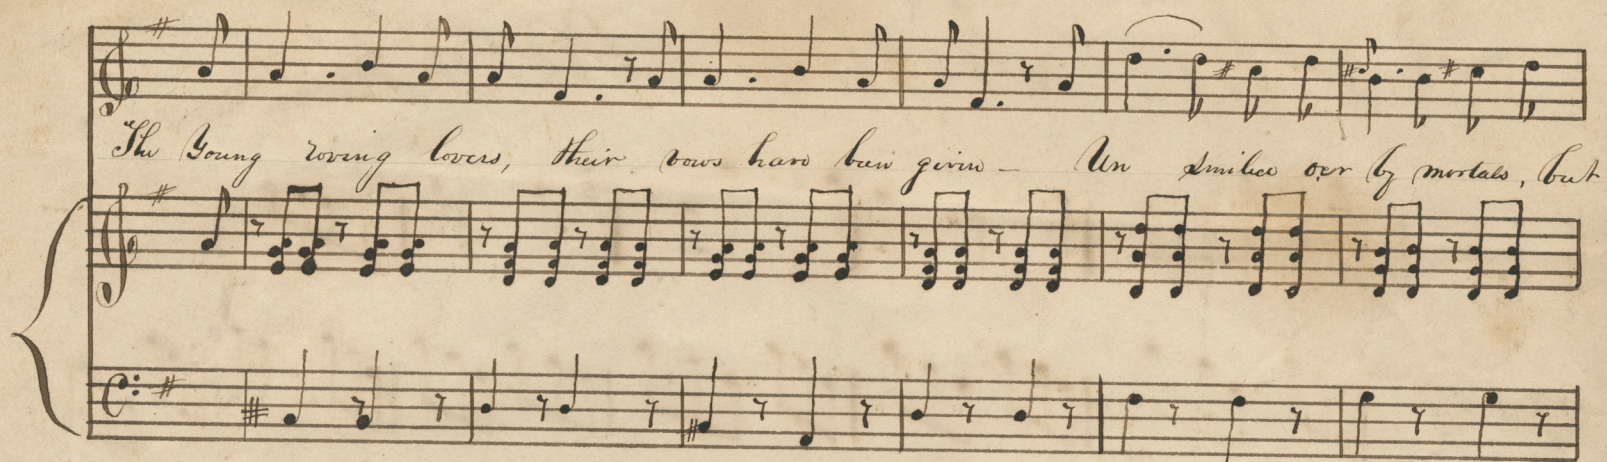 "The Young roving lovers, their vows have been given – Un smiled o'er by mortals, but